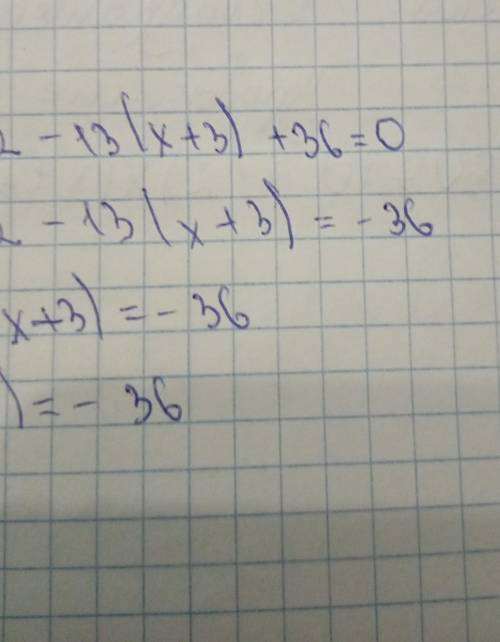 2 - 13(x+3) +36=0
2 - 13(x+3) = -36
x+3) = - 36
) = - 36